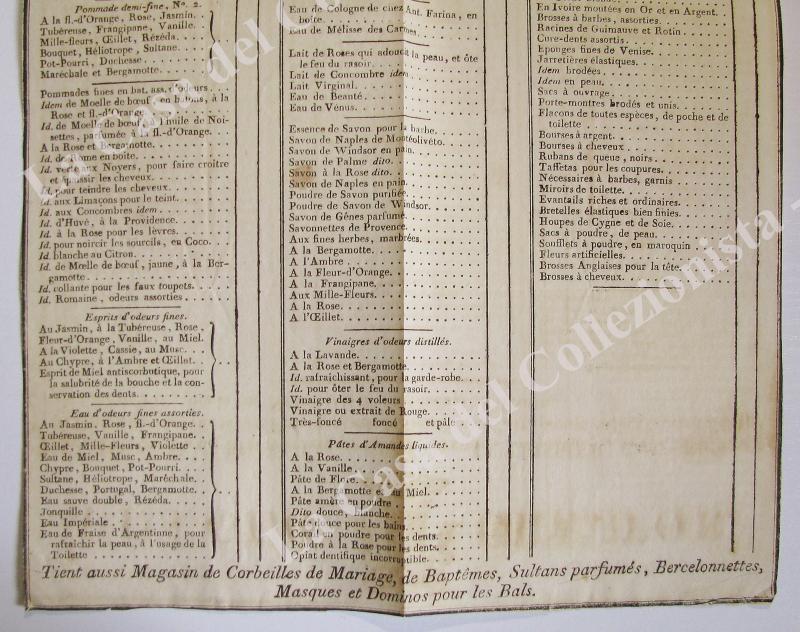 Pommade demi-fine, N°. 2.
A la fl.-d'Orange, Rose, Jasmin.
Tubéreuse, Frangipane, Vanille.
Mille-fleurs, Œillet, Rézéda.
Bouquet, Héliotrope, Sultane.
Pot-Pourri, Duchesse.
Maréchale et Bergamotte.
Pommades fines en bat. ass. d'odeurs
Idem de Moelle de bœuf, en batons, à la
Rose et fl.-d'Orange.
Id. de Moelle de bœuf, à l'huile de Noi-
settes, parfumée à la fl.-d'Orange.
A la Rose et Bergamotte.
Id. de Rome en boite.
Id. verte aux Noyers, pour faire croître
et épaissir les cheveux.
Id. pour teindre les cheveux.
Id. aux Limaçons pour le teint.
Id. aux Concombres idem.
Id. d'Huvé, à la Providence.
Id. à la Rose pour les lèvres.
Id. pour noircir les sourcils, en Coco.
Id. blanche au Citron.
Id. de Moelle de bœuf, jaune, à la Ber-
gamotte.
Id. collante pour les faux toupets.
Id. Romaine, odeurs assorties.
Esprits d'odeurs fines.
Au Jasmin, à la Tubéreuse, Rose.
Fleur-d'Orange, Vanille, au Miel.
A la Violette, Cassie, au Musc.
Au Chypre, à l'Ambre et Œillet.
Esprit de Miel antiscorbutique, pour
la salubrité de la bouche et la con-
servation des dents.
Eau d'odeurs fines assorties.
Au Jasmin, Rose, fl.-d'Orange.
Tubéreuse, Vanille, Frangipane.
Œillet, Mille-Fleurs, Violette
Eau de Miel, Musc, Ambre.
Chypre, Bouquet, Pot-Pourri.
Sultane, Héliotrope, Maréchale.
Duchesse, Portugal, Bergamotte.
Eau suave double, Rézéda.
Jonquille
Eau Impériale
Eau de Fraise d'Argentinne, pour
rafraîchir la peau, à l'usage de la
Toilette
Eau de Cologne de chez Ant. Farina, en
boite.
Eau de Mélisse des Carmes.
Lait de Roses qui adoucit la peau, et ôte
le feu du rasoir.
Lait de Concombre idem.
Lait Virginal.
Eau de Beauté.
Eau de Vénus.
Essence de Savon pour la barbe.
Savon de Naples de Montéolivéto.
Savon de Windsor en pain.
Savon de Palme dito.
Savon à la Rose dito.
Savon de Naples en pain.
Poudre de Savon purifiée.
Poudre de Savon de Windsor.
Savon de Gênes parfumé.
Savonnettes de Provence.
Aux fines herbes, marbrées.
A la Bergamotte.
A l'Ambre
A la Fleur-d'Orange.
A la Frangipane.
Aux Mille-Fleurs.
A la Rose.
A l'Œillet.
Vinaigres d'odeurs distillés.
A la Lavande.
A la Rose et Bergamotte.
Id. rafraîchissant, pour la garde-robe.
Id. pour ôter le feu du rasoir.
Vinaigre des 4 voleurs
Vinaigre ou extrait de Rouge.
Très-foncé foncé et pâle
Pâtes d'Amandes liquides.
A la Rose.
A la Vanille.
Pâte de Flore.
A la Bergamotte et au Miel.
Pâte amère en poudre
Dito douce, blanche.
Pâte douce pour les bains.
Corail en poudre pour les dents.
Poudre à la Rose pour les dents.
Opiat dentifique incorruptible.
En Ivoire montées en Or et en Argent.
Brosses à barbes, assorties.
Racines de Guimauve et Rotin.
Cure-dents assortis.
Eponges fines de Venise.
Jarretières élastiques.
Idem brodées.
Idem en peau.
Sacs à ouvrage.
Porte-montres brodés et unis.
Flacons de toutes espèces, de poche et de
toilette
Bourses à argent.
Bourses à cheveux.
Rubans de queue, noirs.
Taffetas pour les coupures.
Nécessaires à barbes, garnis
Miroirs de toilette.
Evantails riches et ordinaires.
Bretelles élastiques bien finies.
Houpes de Cygne et de Soie.
Sacs à poudre, de peau.
Soufflets à poudre, en maroquin
Fleurs artificielles.
Brosses Anglaises pour la tête.
Brosses à cheveux.
Tient aussi Magasin de Corbeilles de Mariage, de Baptêmes, Sultans parfumés, Bercelonnettes,
Masques et Dominos pour les Bals.
La Casa del Collezionista